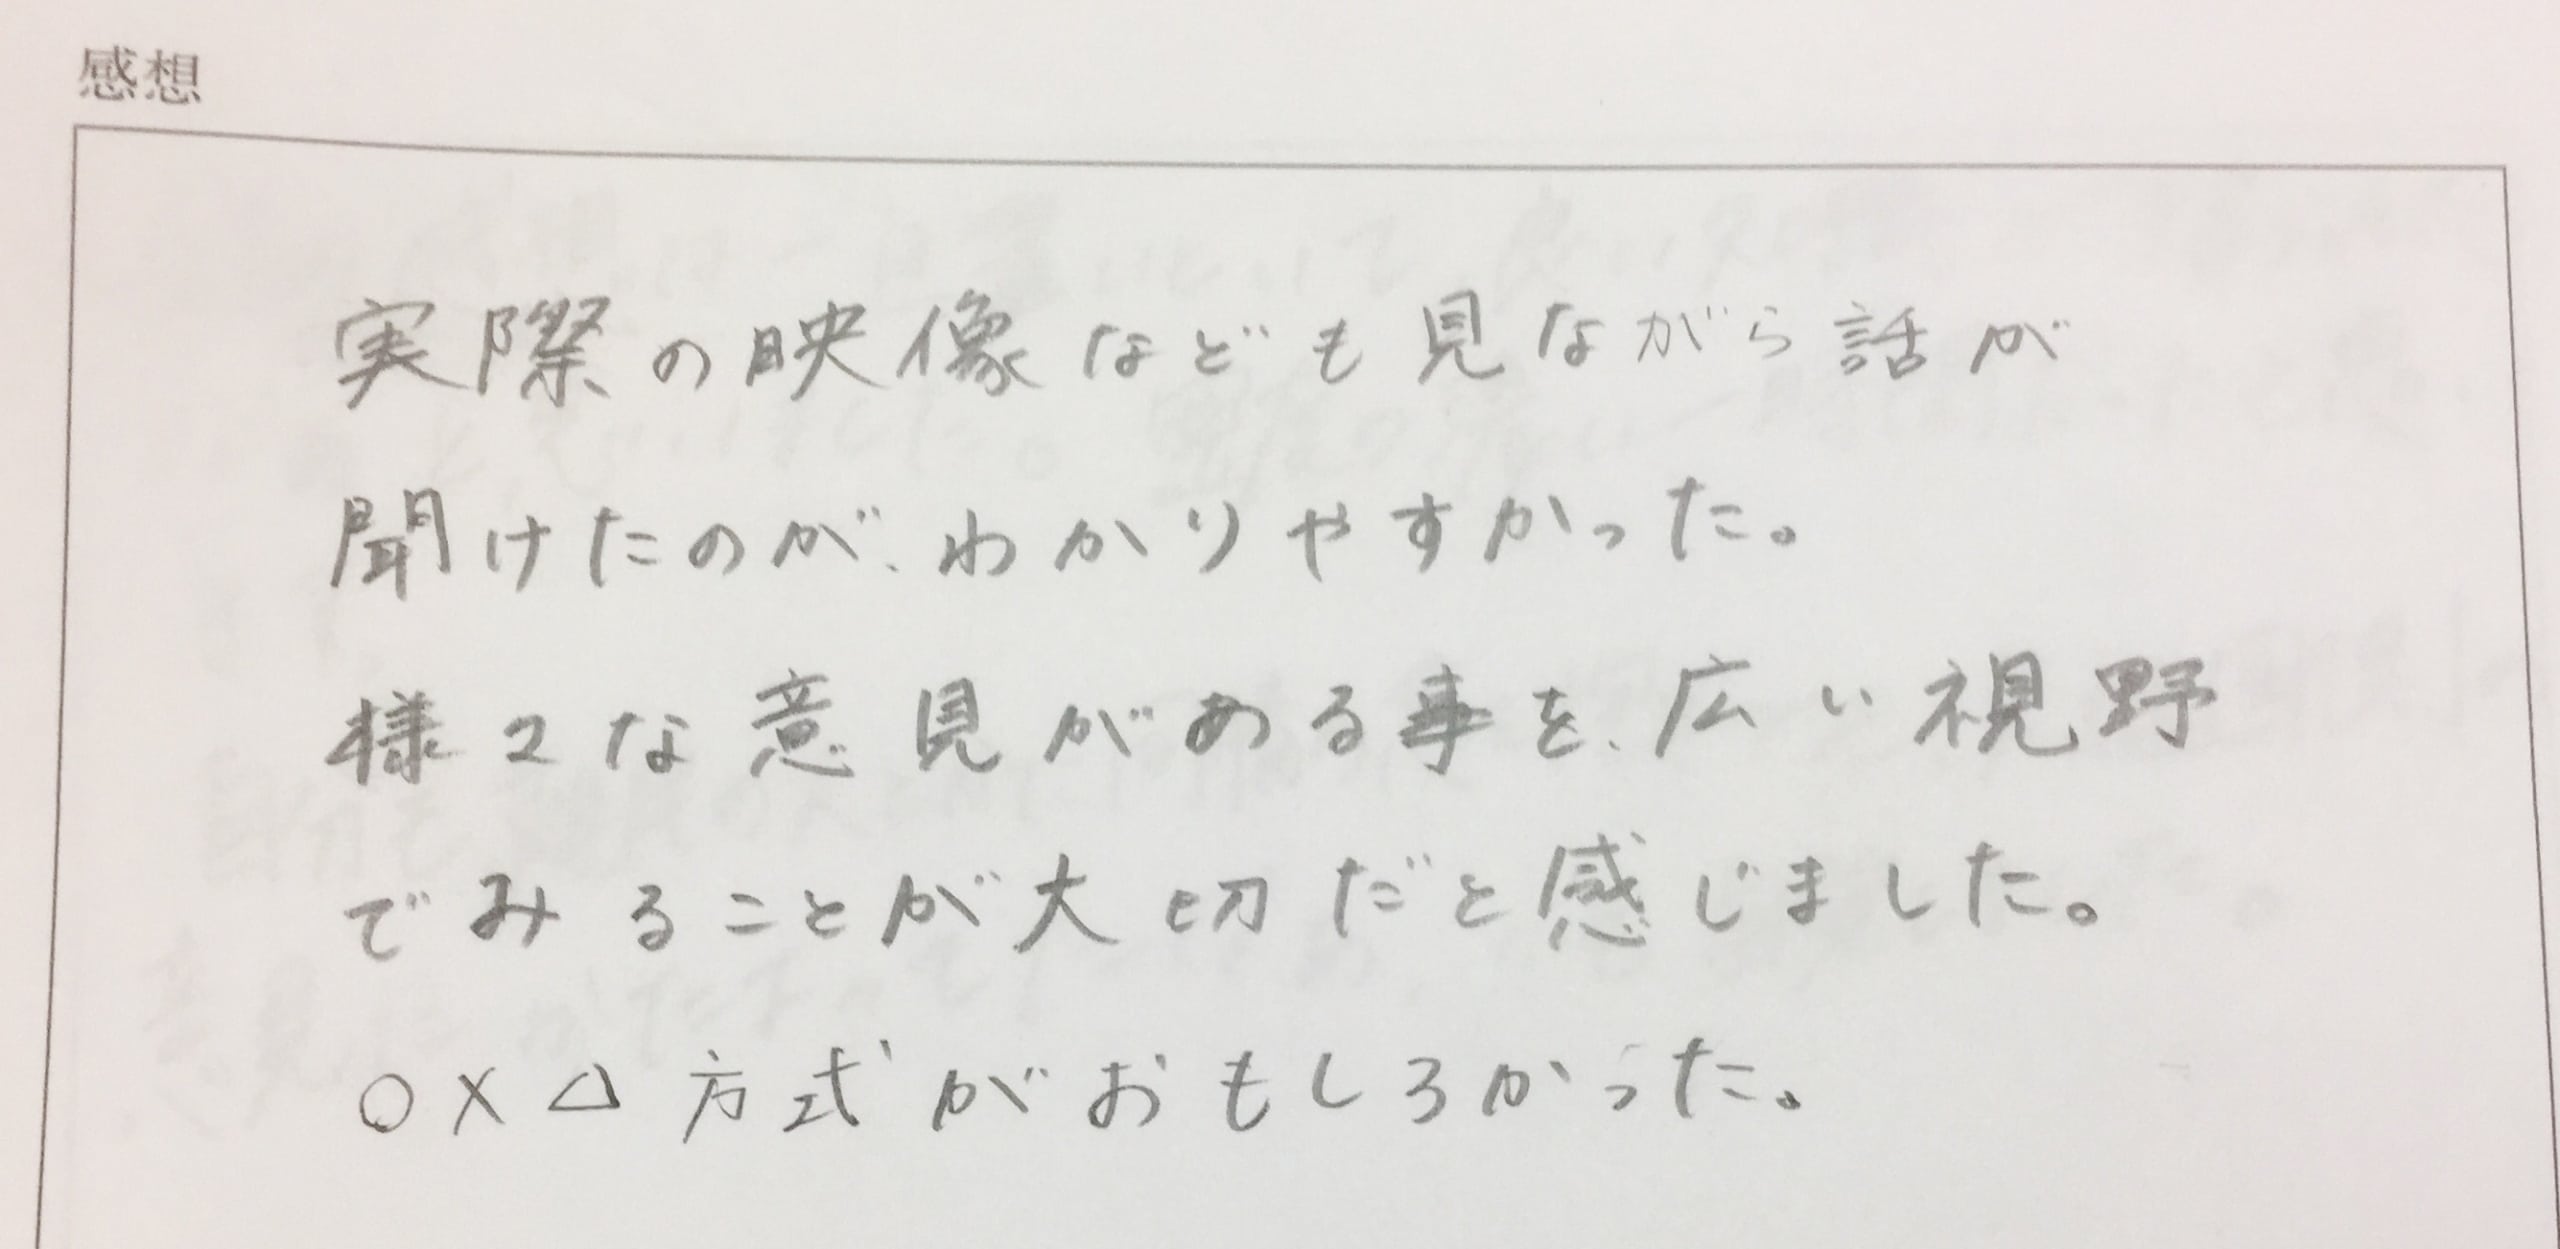 感想
実際の映像なども見ながら話が
聞けたのが、わかりやすかった。
様々な意見がある事を、広い視野
でみることが大切だと感じました。
○×△方式がおもしろかった。